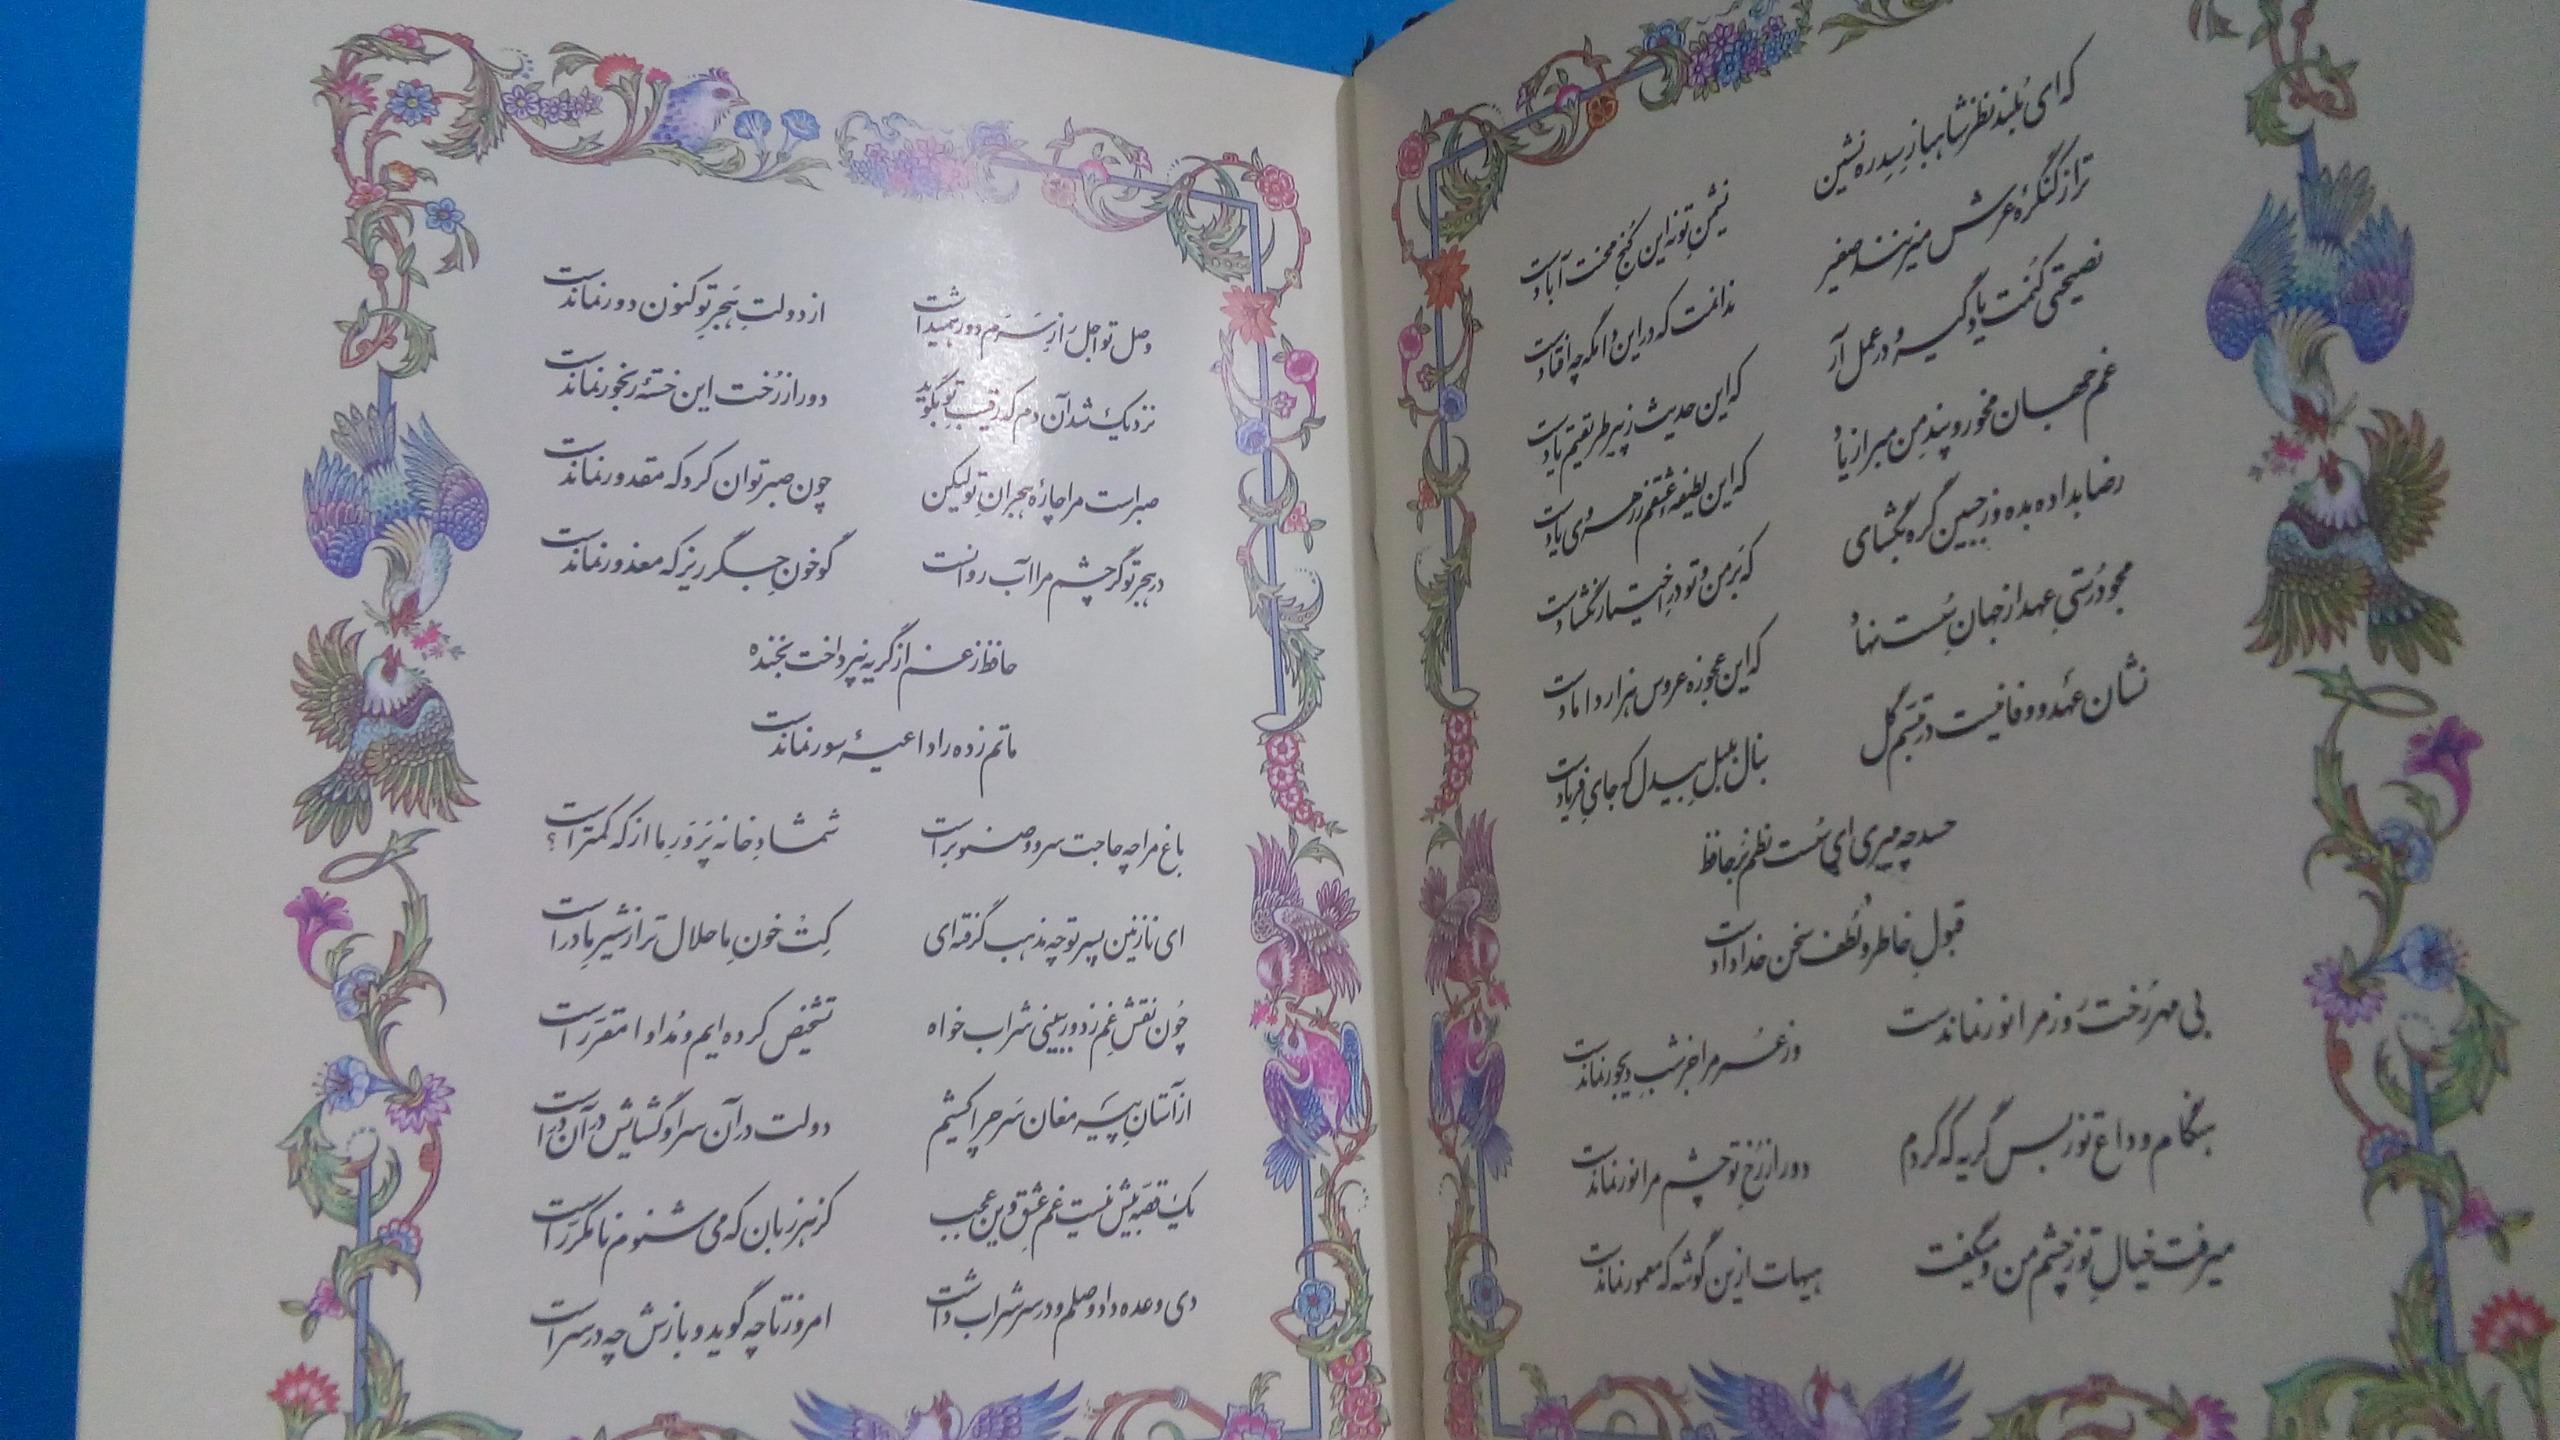 که ای بلند نظر شاهباز سدره نشین
نشیمن تو نه این کنج محنت آبادست
ترا ز کنگرهٔ عرش میزنند صفیر
ندانمت که در این دامگه چه افتادست
نصیحتی کنمت یاد گیر و در عمل آر
که این حدیث ز پیر طریقتم یادست
غم جهان مخور و پند من مبر از یاد
که این لطیفهٔ عشقم ز رهروی یادست
رضا بداده بده وز جبین گره بگشای
که بر من و تو در اختیار نگشادست
مجو درستی عهد از جهان سست نهاد
که این عجوزه عروس هزار دامادست
نشان عهد و وفا نیست در تبسم گل
بنال بلبل بیدل که جای فریادست
حسد چه میبری ای سست نظم بر حافظ
قبول خاطر و لطف سخن خدادادست
بی مهر رخت روز مرا نور نماندست
وز عمر مرا جز شب دیجور نماندست
هنگام وداع تو ز بس گریه که کردم
دور از رخ تو چشم مرا نور نماندست
میرفت خیال تو ز چشم من و میگفت
هیهات ازین گوشه که معمور نماندست
وصل تو اجل را ز سرم دور همیداشت
از دولت هجر تو کنون دور نماندست
نزدیک شد آن دم که رقیب تو بگوید
دور از رخت این خستهٔ رنجور نماندست
صبر است مرا چارهٔ هجران تو لیکن
چون صبر توان کرد که مقدور نماندست
در هجر تو گر چشم مرا آب روانست
گو خون جگر ریز که معذور نماندست
حافظ ز غم از گریه نپرداخت بخنده
ماتم زده را داعیهٔ سور نماندست
باغ مرا چه حاجت سرو و صنوبر است
شمشاد خانه پرور ما از که کمتر است؟
ای نازنین پسر تو چه مذهب گرفته ای
کت خون ما حلال تر از شیر مادر است
چون نقش غم ز دور ببینی شراب خواه
تشخیص کرده ایم و مداوا مقرر است
از آستان پیر مغان سر چرا کشیم
دولت در آن سرا و گشایش در آن در است
یک قصه بیش نیست غم عشق وین عجب
کز هر زبان که می شنوم نامکرر است
دی وعده داد وصلم و در سر شراب داشت
امروز تا چه گوید و بازش چه در سر است